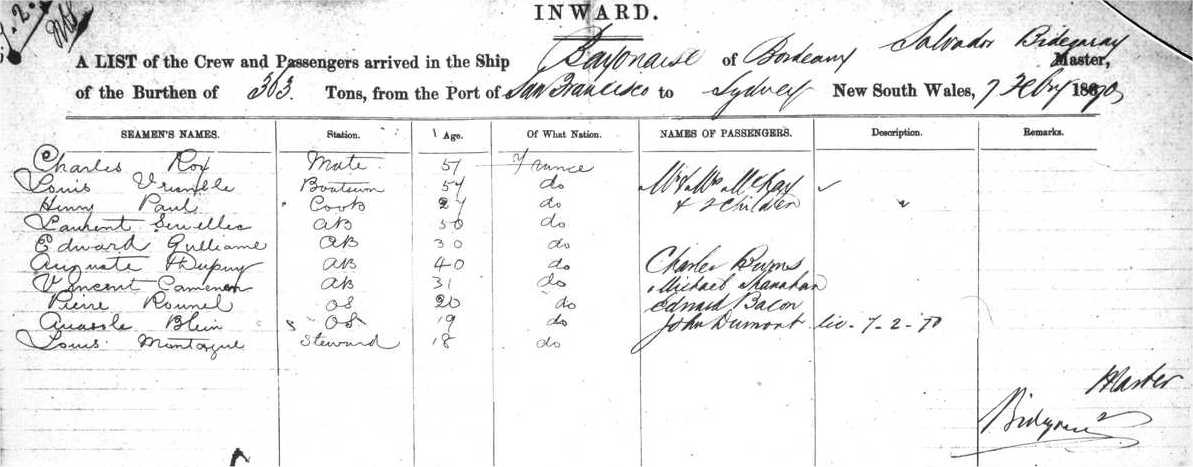 INWARD.
A LIST of the Crew and Passengers arrived in the Ship Bayonaise of Bordeaux Salvador Bidegaray Master,
of the Burthen of 303 Tons, from the Port of San Francisco to Sydney New South Wales, 7 Feby 1870
SEAMEN'S NAMES. Station. Age. Of What Nation. NAMES OF PASSENGERS. Description. Remarks.
Charles Roy Mate 51 France
Louis Boatswn 54 do Mr & Mrs McKay
Henri Paul Cook 27 do & 2 Children
Laurent AB 50 do
Edward Gulliame AB 30 do
Auguste Dupuy AB 40 do Charles
Vincent AB 31 do Michael Shanahan
Pierre OS 20 do Edward Bacon
Blein OS 19 do John Dumont lic. 7-2-70
Louis Montague Steward 18 do
Master